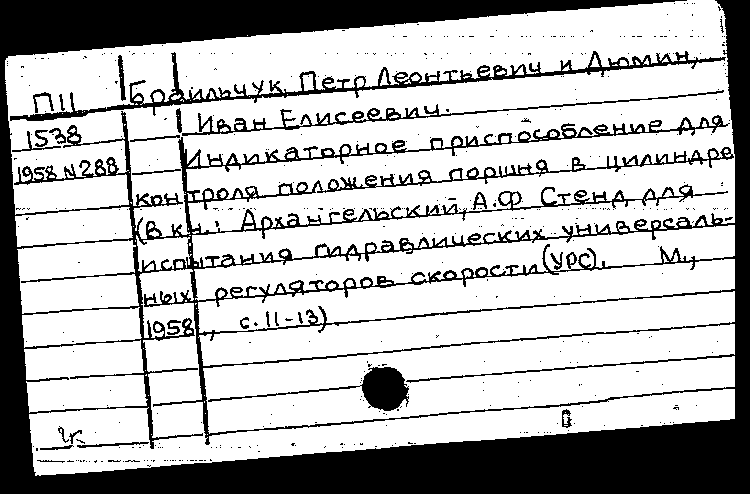 П11 Браильчук, Петр Леонтьевич и Дюмин,
1538 Иван Елисеевич.
1958 №288 Индикаторное приспособление для
контроля положения поршня в цилиндре
(В кн.: Архангельский, А.Ф Стенд для
испытания гидравлических универсаль-
ных регуляторов скорости (УРС). М.,
1958, с. 11-13).